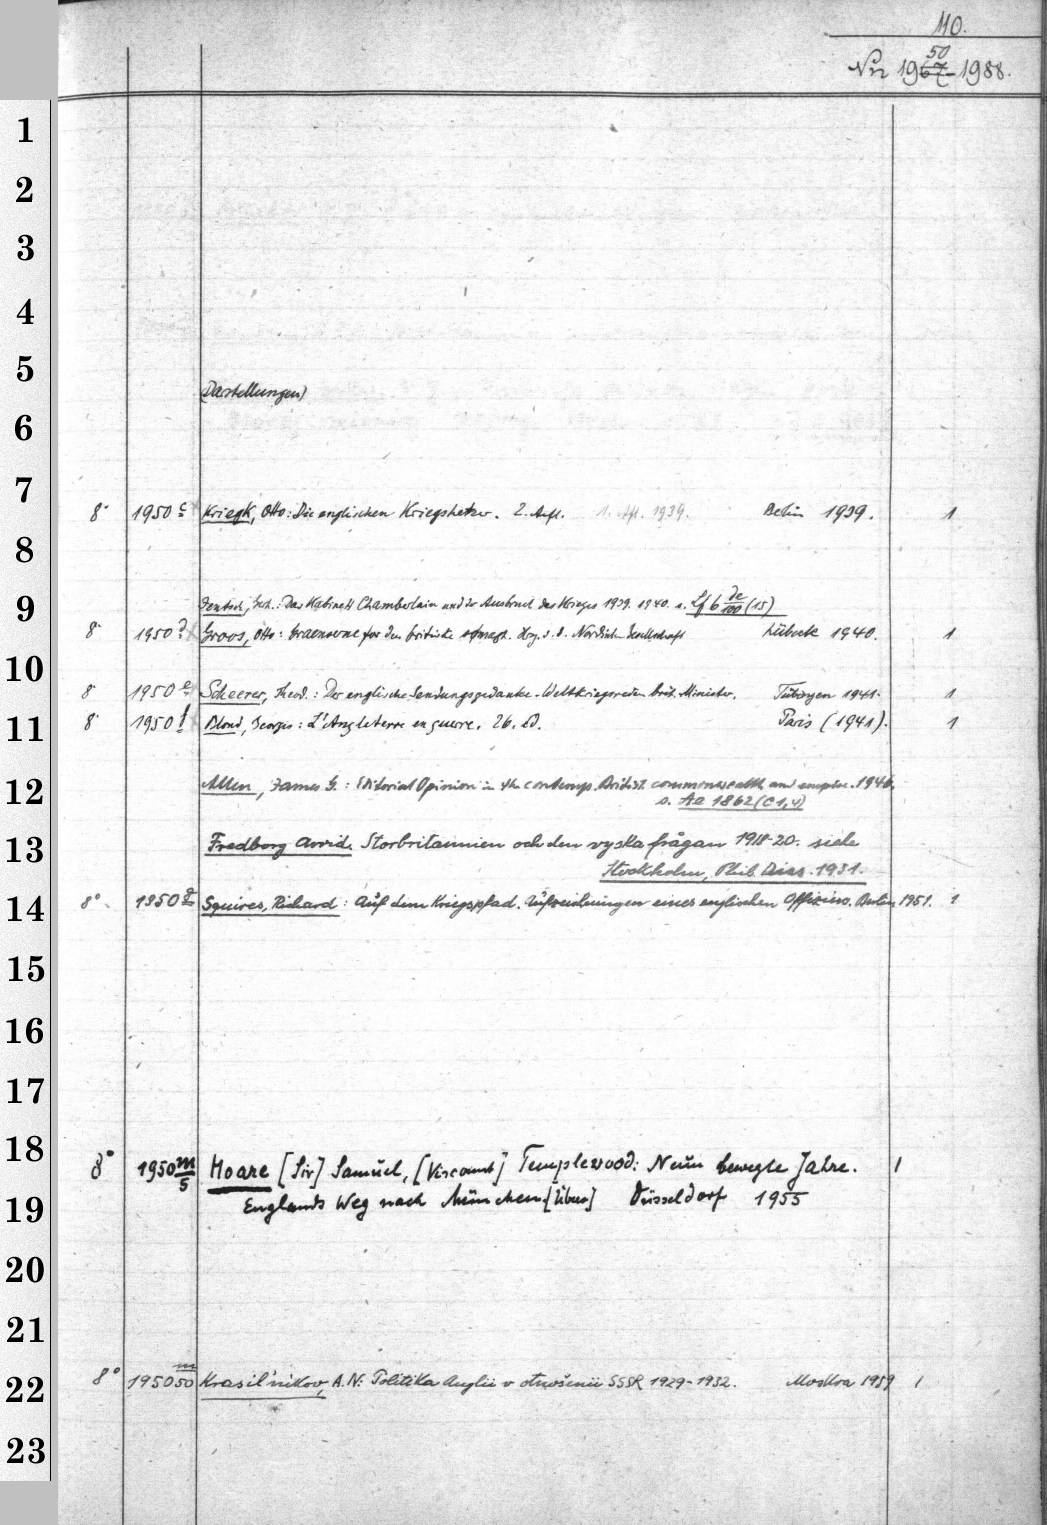 110.
50
Nr 1967-1988.
1
2
3
4
5
(Darstellungen)
6
7
8° 1950 c Kriegk, Otto: Die englischen Kriegshetzer. 2. Aufl. 1. Afl. 1939. Berlin 1939. 1
8
9
Jentsch, Gerh.: Das Kabinett Chamberlain und der Ausbruch des Krieges 1939. 1940. s. Lf 6 de/100 (15)
8° 1950 d Groos, Otto: Graenserne for den britiske. Hrg. v. d. Nordischen Gesellschaft Lübeck 1940. 1
10
8° 1950 e Scheerer, Theod.: Der englische Sendungsgedanke. Weltkriegsreden brit. Minister. Tübingen 1941. 1
11
8° 1950 f Blond, Georges: L'Angleterre en guerre. 26. Ed. Paris (1941). 1
12
Allen, James G.: Editorial Opinion in the contemp. British commonwealth and empire. 1946.
s. Ae 1862 (C1,4)
13
Fredborg Arvid, Storbritannien och den ryska frågan 1918-20. siehe
Stockholm, Phil. Diss. 1951.
14
8° 1950 g Squires, Richard: Auf dem Kriegspfad. Aufzeichnungen eines englischen Offiziers. Berlin 1951. 1
15
16
17
18
8° 1950 m/5 Hoare [Sir] Samuel, [Viscount] Templewood: Neun bewegte Jahre. 1
19
Englands Weg nach München [Übers] Düsseldorf 1955
20
21
22
8° 1950 m/50 Krasil'nikov, A.N: Politika Anglii v otnošenii SSSR 1929-1932. Moskva 1959 1
23